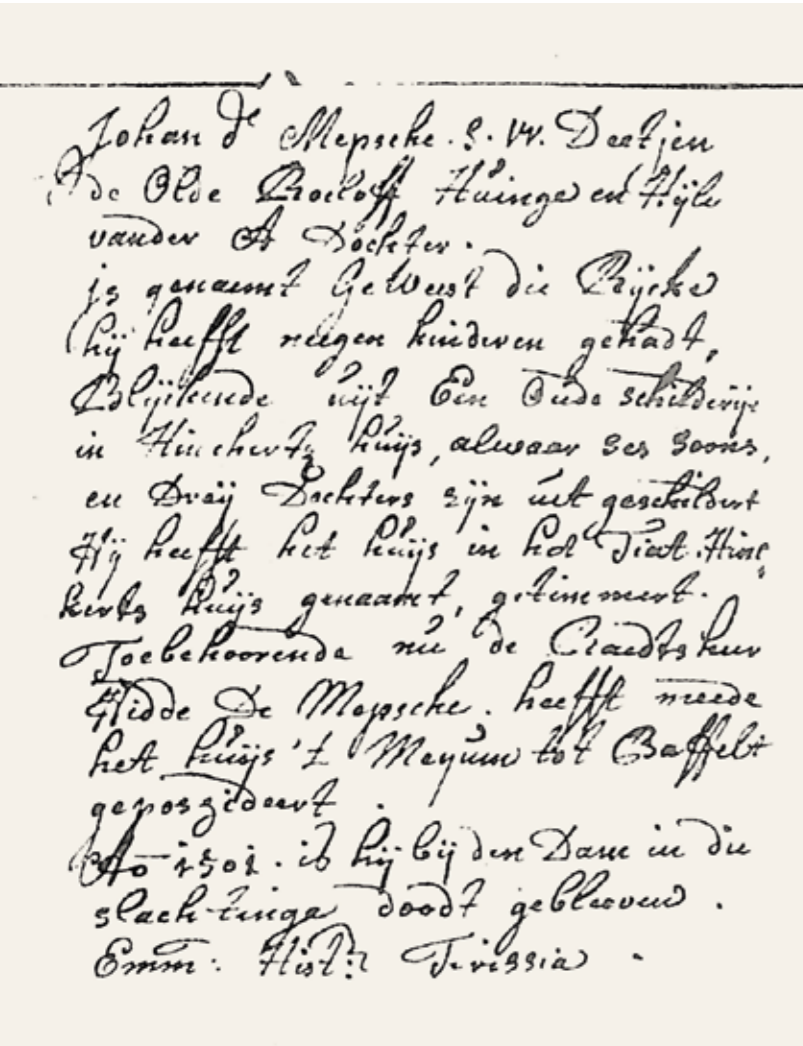 Johan de Mepsche. S. W. Deetjen
de Olde Roeloff Huinge en Hijle
vander A Dochter.
is genaemt Geweest die Rijcke
hij heefft neegen kinderen gehadt,
Blijckende uijt Een Oude schilderije
in Hinckertz huijs, alwaar ses soons,
en Dreij Dochters zijn uit geschildert
Hij heefft het huijs in hot Tiat Hinc
kerts huijs genaamt, getimmert.
Toebehoorende nu de Raedtsheer
Hidde De Mepsche. heefft meede
het huijs 't Meijum tot Baffelt
geposzideert.
Ao 1501. is hij bij den Dam in die
slachtinge doodt gebleeven.
Emm: Hist: